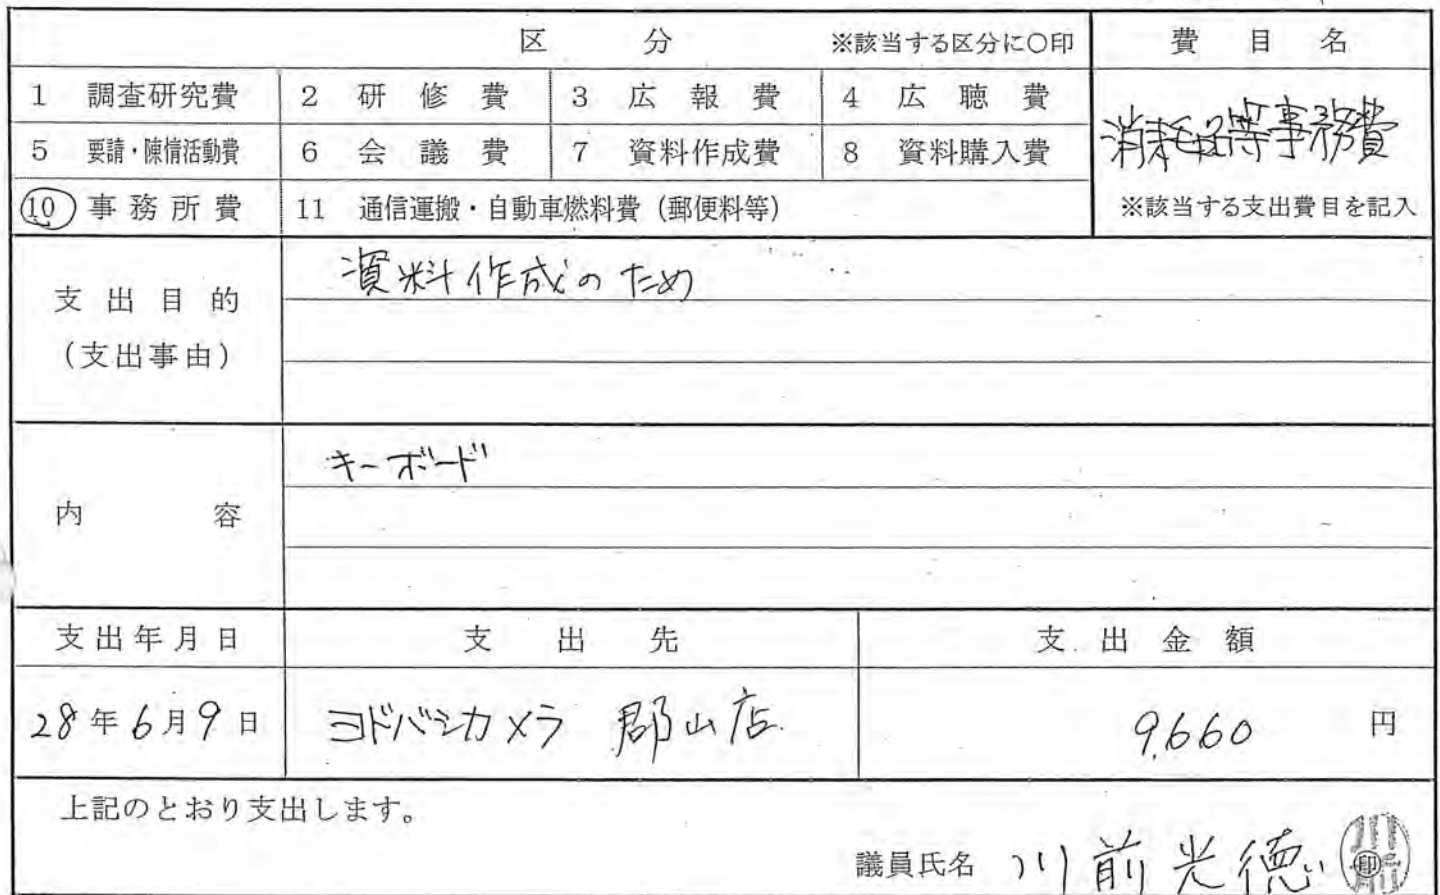 区 分 ※該当する区分に〇印 費 目 名
1 調査研究費 2 研 修 費 3 広 報 費 4 広 聴 費
5 要請・陳情活動費 6 会 議 費 7 資料作成費 8 資料購入費
消耗品等事務費
10 事 務 所 費 11 通信運搬・自動車燃料費（郵便料等） ※該当する支出費目を記入
支 出 目 的
（支出事由）
資料作成のため
内 容
キーボード
支出年月日 支 出 先 支 出 金 額
28年6月9日 ヨドバシカメラ 郡山店 9,660 円
上記のとおり支出します。
議員氏名 川前光徳 印